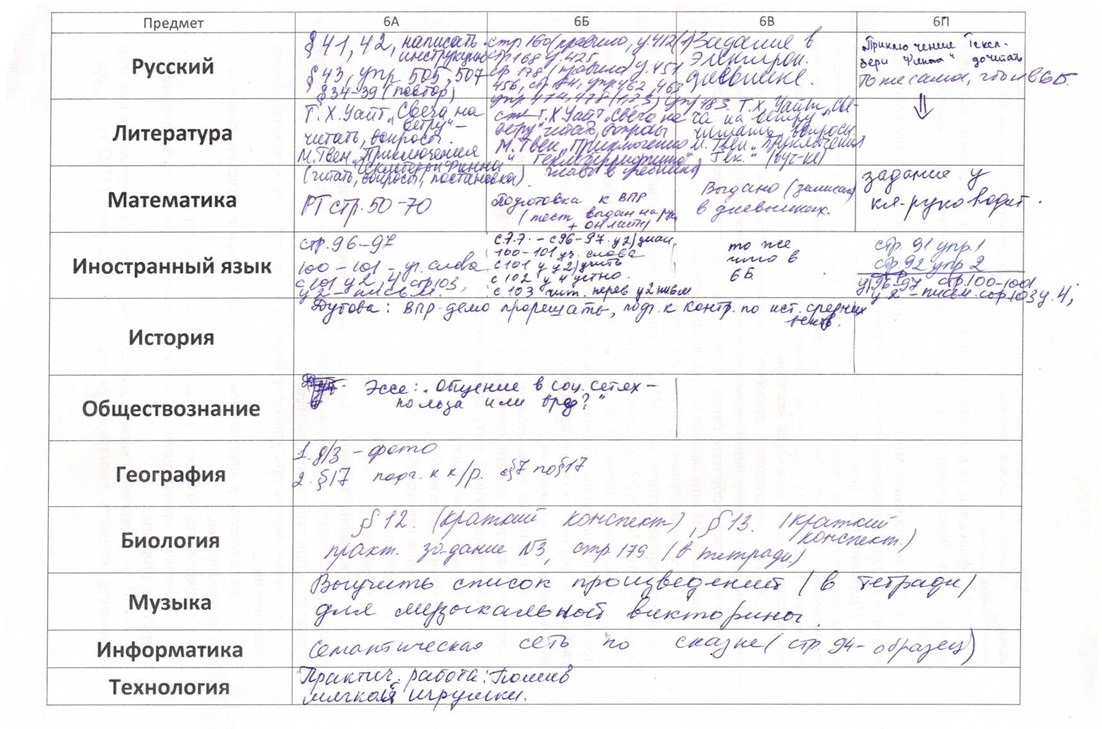 Предмет 6А 6Б 6В 6П
Русский
§ 41, 42, написать инструкцию
§ 43, упр. 505, 507
§ 34-39 (повтор)
стр 160 (правило, у 412(1)
стр 168 у. 425
стр 178 (правила) у. 451
456, стр 184, упр. 462, 463
упр. 474, 478 (1,2,3) упр 483.
Задание в
электрон.
дневнике.
"Приключение Гекль-
бери Финна" дочитать
То же самое, что и в 6Б.
Литература
Т. Х. Уайт „Свеча на
ветру" –
читать, вопросы.
М. Твен „Приключения
Гекльберри Финна"
(читать, вопросы, постановка).
Т. Х Уайт „Свеча на
ветру" читать, вопросы
М. Твен „Приключения
Гекльберрифинна"
главы в учебнике
Т. Х. Уайт „Све-
ча на ветру"
читать, вопросы
М. Твен „Приключения
Гек."
Математика
РТ стр. 50-70
Подготовка к ВПР
(тест выдан на руки
+ онлайн)
Выдано (записано)
в дневниках.
задание у
кл-руководит.
Иностранный язык
стр. 96-97
100 – 101 – уч. слова
с 101 у 2, у 4, стр 103,
у 2 – письм.
с 97 – с 96-97 у 2)
100-101 уч. слова
с 101 у у 2) учить
с 102 у 4 устно.
с 103 чит. перев у 2 письм
то же
что в
6Б
стр 91 упр. 1
стр 92 упр 2
у 96-97 стр. 100-101
у 2 – писем. стр 103 у. 4;
История
Дутова: ВПР-демо прорешать, подг. к контр. по ист. средних
веков.
Обществознание
Эссе: „Общение в соц. сетях –
польза или вред?"
География
1. д/з – фото
2. § 17 подг. к к/р. с § 7 по § 17
Биология
§ 12. (краткий конспект), § 13. (краткий
конспект.)
практ. задание №3, стр 179 (в тетради)
Музыка
Выучить список произведений (в тетради)
для музыкальной викторины.
Информатика
Семантическая сеть по сказке (стр. 94- образец)
Технология
Практич. работа: Пошив
мягкой игрушки.